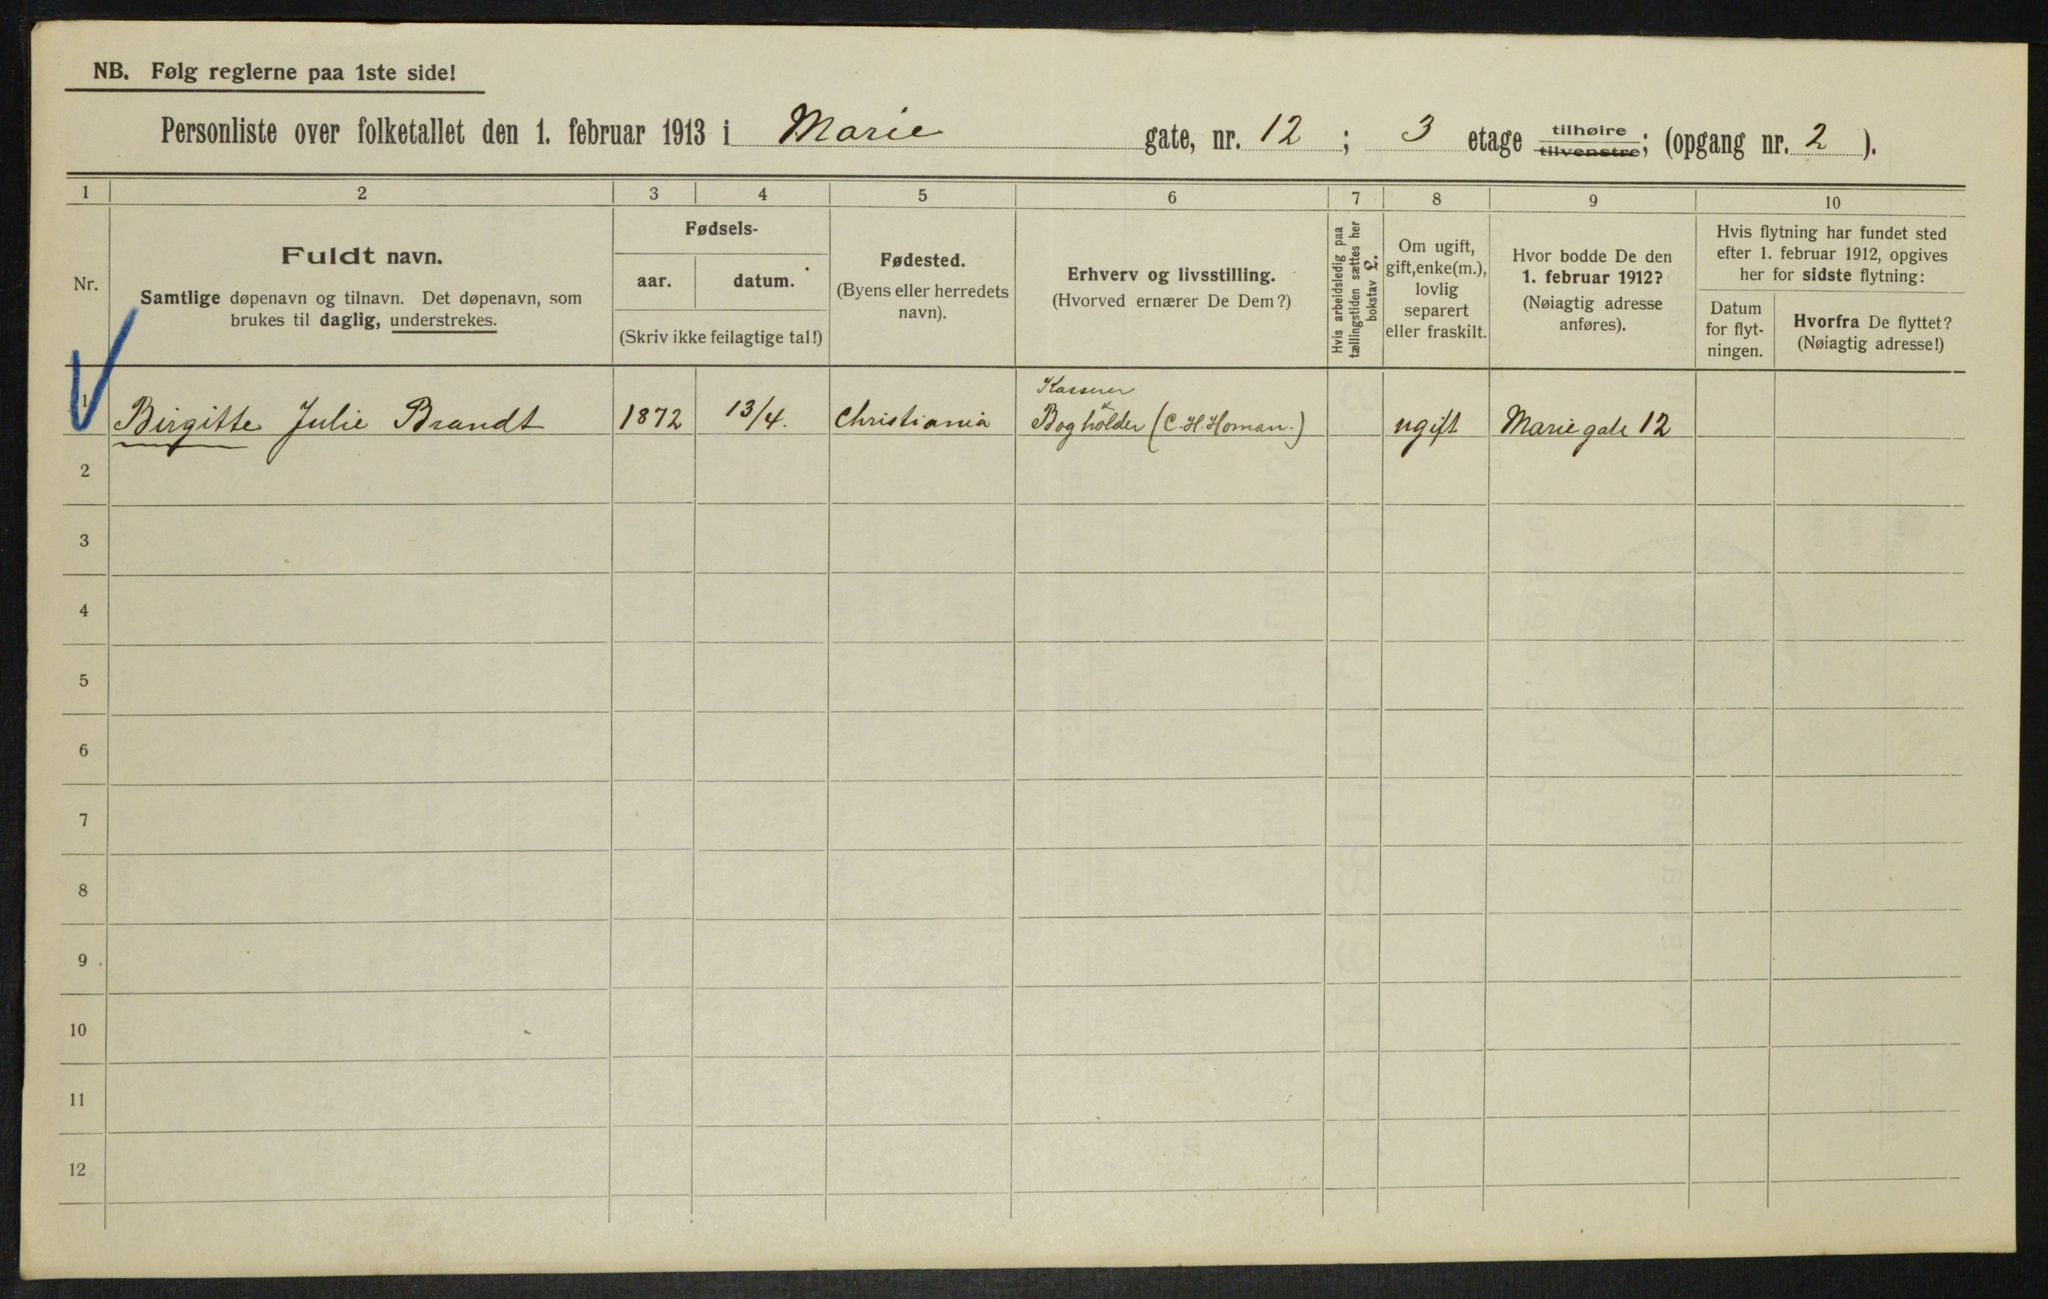 NB. Følg reglerne paa 1ste side!
Personliste over folketallet den 1. februar 1913 i Marie gate, nr. 12 ; 3 etage tilhøire tilvenstre; (opgang nr. 2 ).
1 2 3 4 5 6 7 8 9 10
Nr.
Fuldt navn.
Samtlige døpenavn og tilnavn. Det døpenavn, som
brukes til daglig, understrekes.
Fødsels-
aar. datum.
(Skriv ikke feilagtige tal!)
Fødested.
(Byens eller herredets
navn).
Erhverv og livsstilling.
(Hvorved ernærer De Dem?)
Hvis arbeidsledig paa
tællingstiden sættes her
bokstav L.
Om ugift,
gift, enke(m.),
lovlig
separert
eller fraskilt.
Hvor bodde De den
1. februar 1912?
(Nøiagtig adresse
anføres).
Hvis flytning har fundet sted
efter 1. februar 1912, opgives
her for sidste flytning:
Datum
for flyt-
ningen.
Hvorfra De flyttet?
(Nøiagtig adresse!)
Kasserer
1 Birgitte Julie Brandt 1872 13/4. Christiania & Bogholder (C. H. Homan.) ugift Marie gate 12
2
3
4
5
6
7
8
9
10
11
12